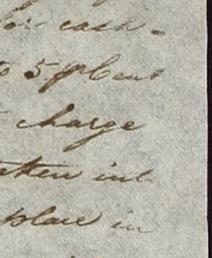 for cash
to 5 p Cent
charge
taken into
place in